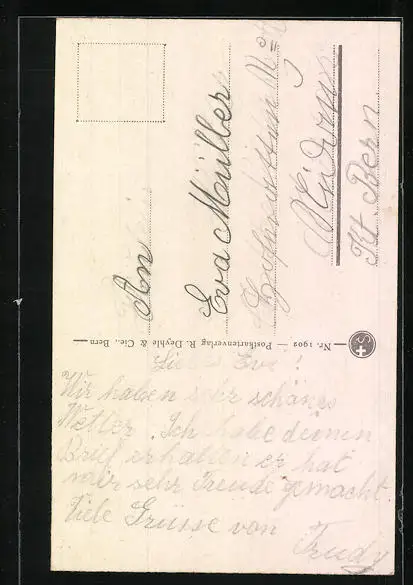 Liebe Eva!
Wir haben sehr schönes
Wetter. Ich habe deinen
Brief erhalten er hat
mir sehr Freude gemacht
Viele Grüsse von
Trudy
Nr. 1902 — Postkartenverlag R. Deyhle & Cie., Bern
An
Eva Müller
Kt Bern